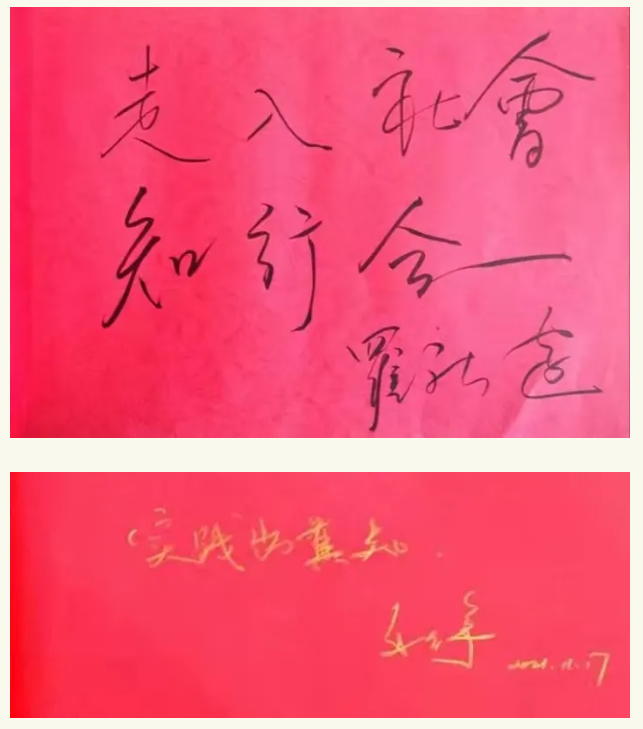 走入社會
知行合一
罗社远
实践出真知.
2021.12.17